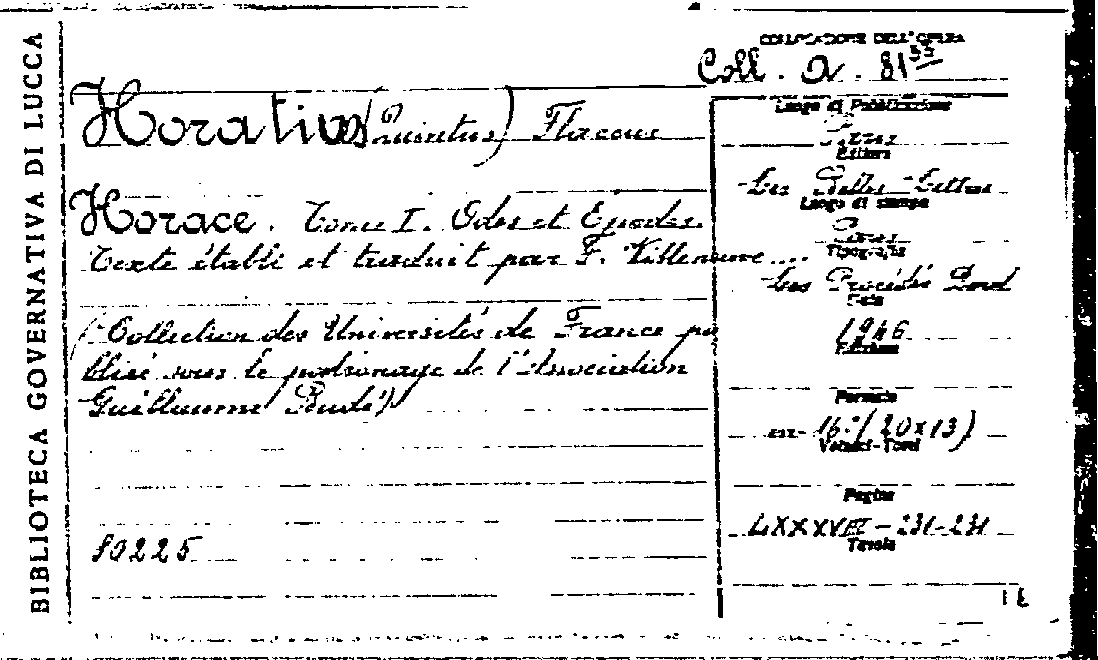 BIBLIOTECA GOVERNATIVA DI LUCCA
COLLOCAZIONE DELL'OPERA
Coll. a. 81
Horatius (Quintus) Flaccus
Horace. Tome I. Odes et Epodes.
Texte établi et traduit par F. Villeneuve....
(Collection des Universités de France pu
bliée sous le patronage de l'Association
Guillaume Budé)
80225
Luogo di Pubblicazione
Paris
Editore
Les Belles-Lettres
Luogo di stampa
Paris
Tipografia
Les Procédés Dorel
Data
1946
Edizione
Formato
16° (20x13)
Volumi-Tomi
Pagine
LXXXVIII-231-231
Tavole